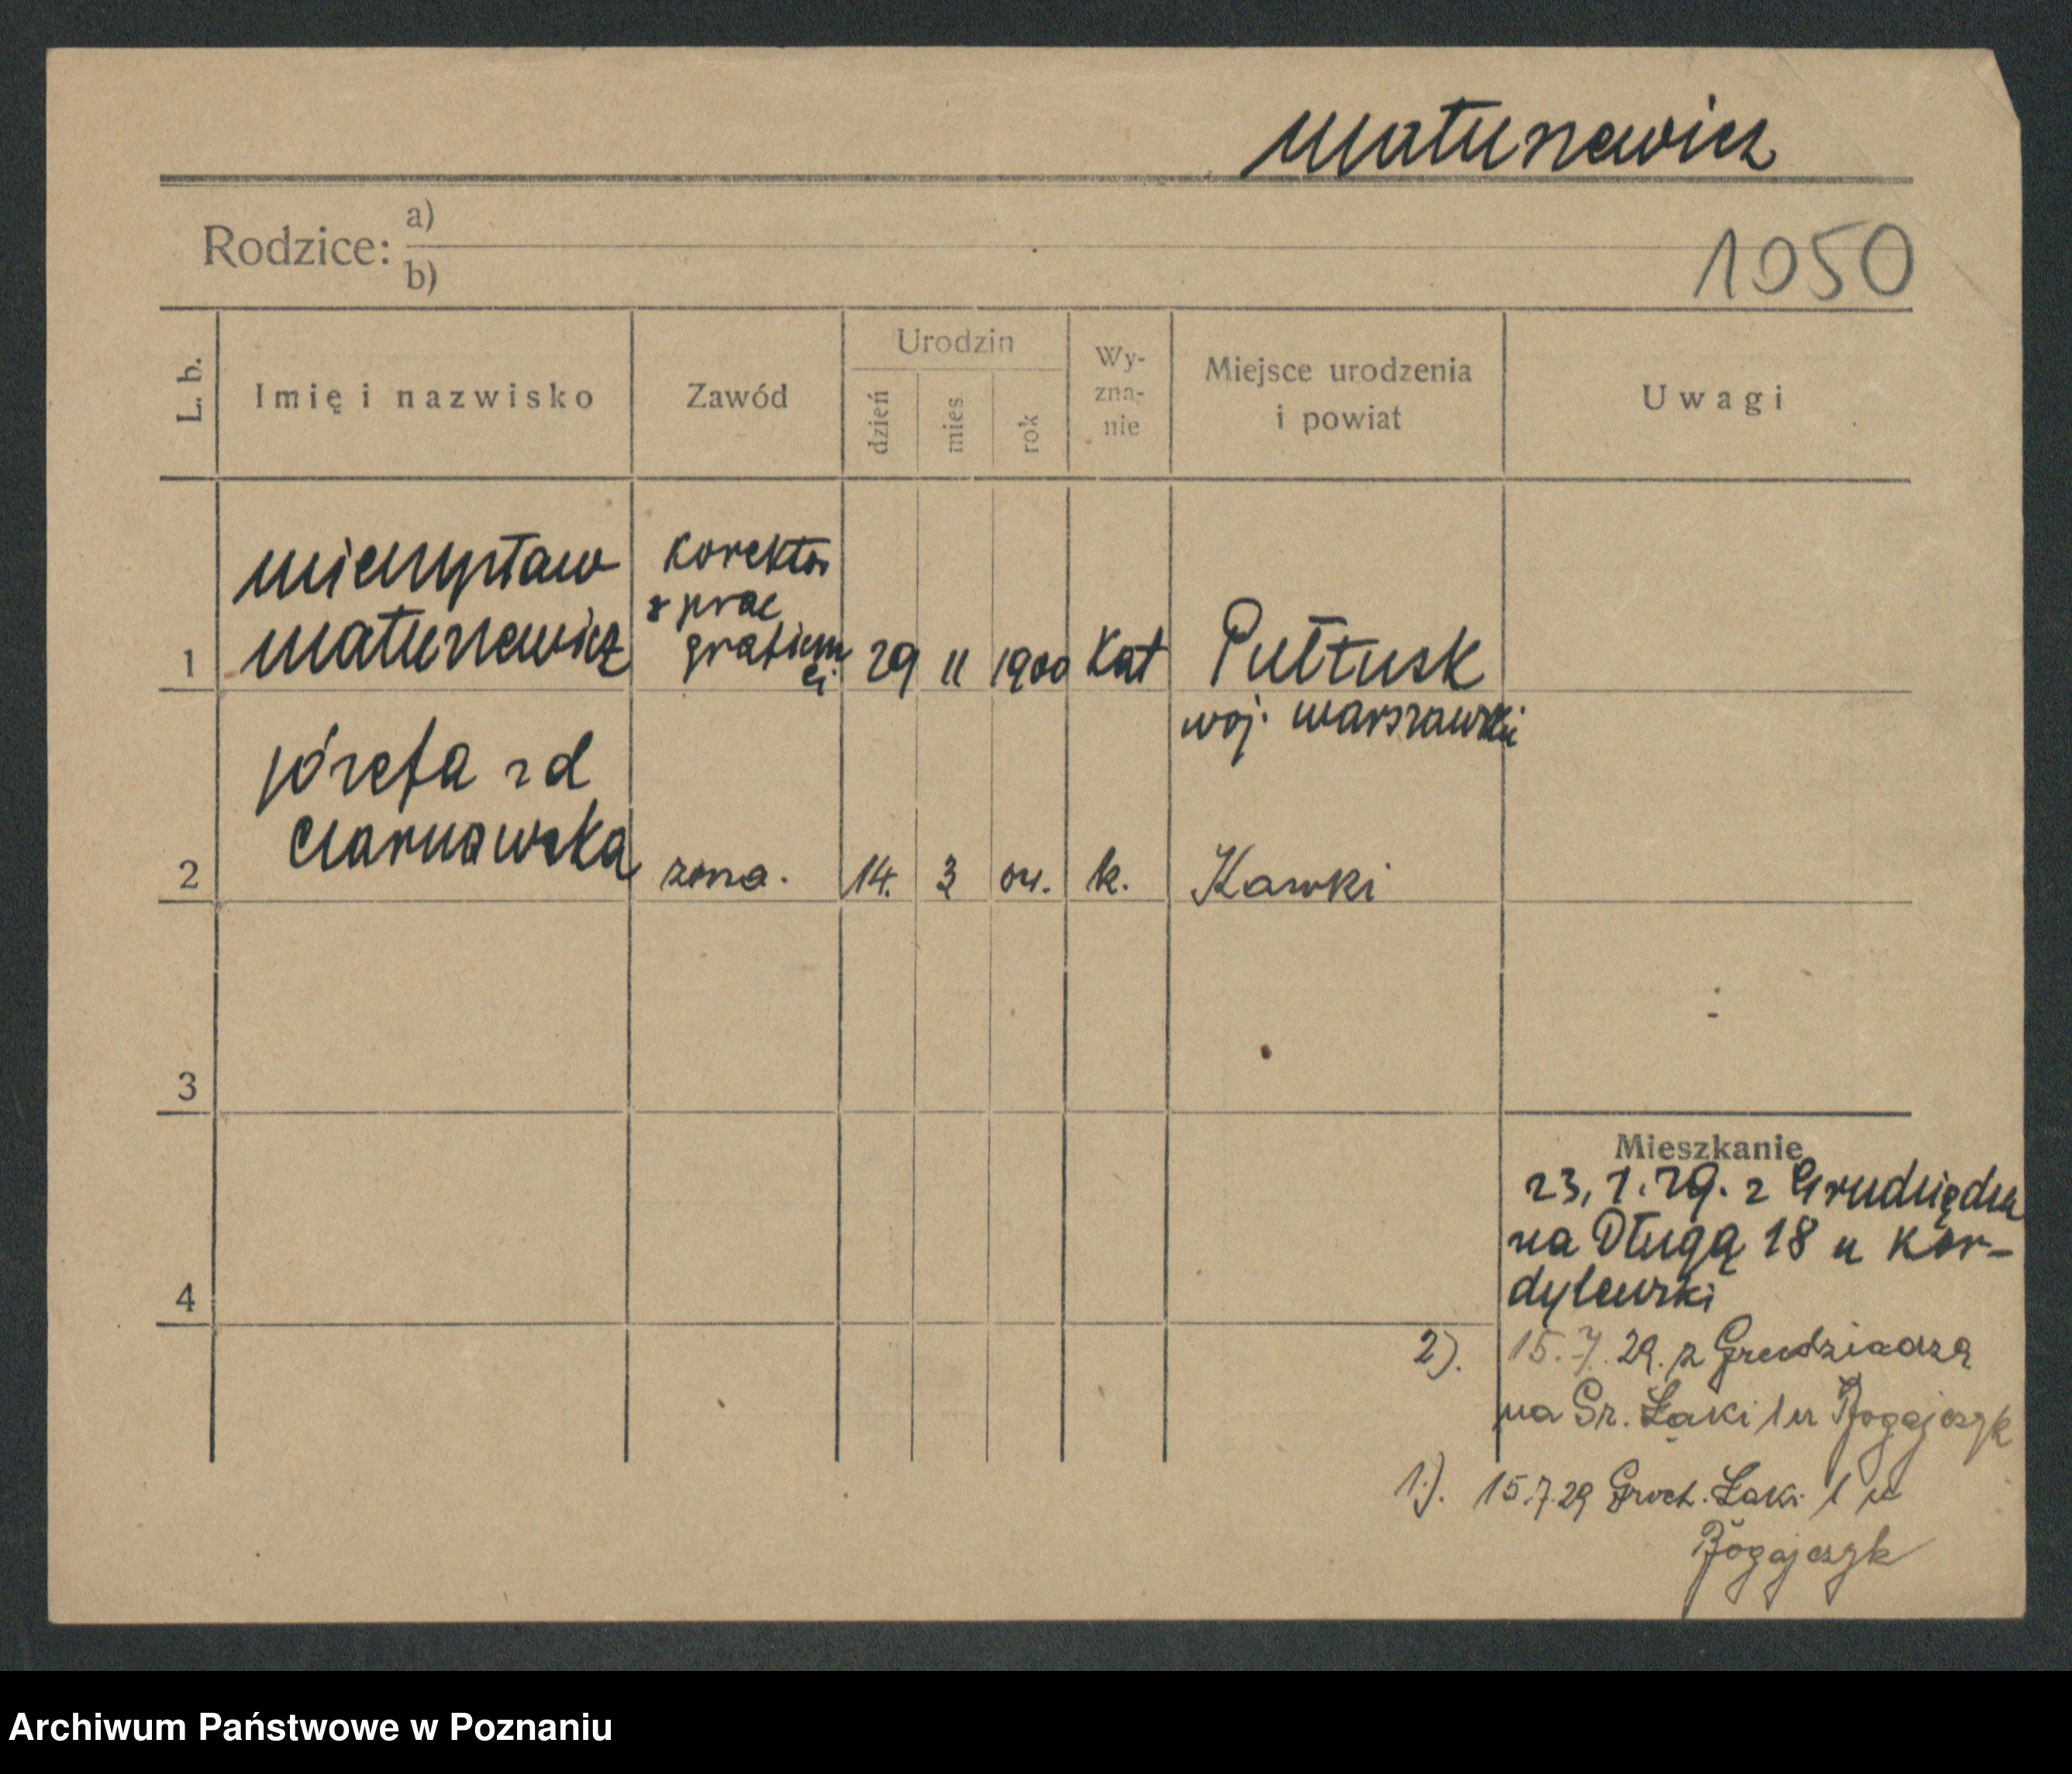 Matuszewicz
Rodzice: a)
b)
1050
L. b.
Imię i nazwisko
Zawód
Urodzin
dzień
mies
rok
Wy-
zna-
nie
Miejsce urodzenia
i powiat
Uwagi
1
Mieczysław
Matuszewicz
Korektor
z prac
29
11
1900
Kat
Pułtusk
woj. warszawski
2
Józefa zd
żona.
14.
3
04.
k.
Kawki
3
4
Mieszkanie
23.1.29. z Grudziędza
na Długą 18 u Kor-
dylewski
2). 15.7.29. z Grudziadza
na Gr. Łąki 1 u
1). 15.7.29 Groch. Łąki 1 u
Archiwum Państwowe w Poznaniu